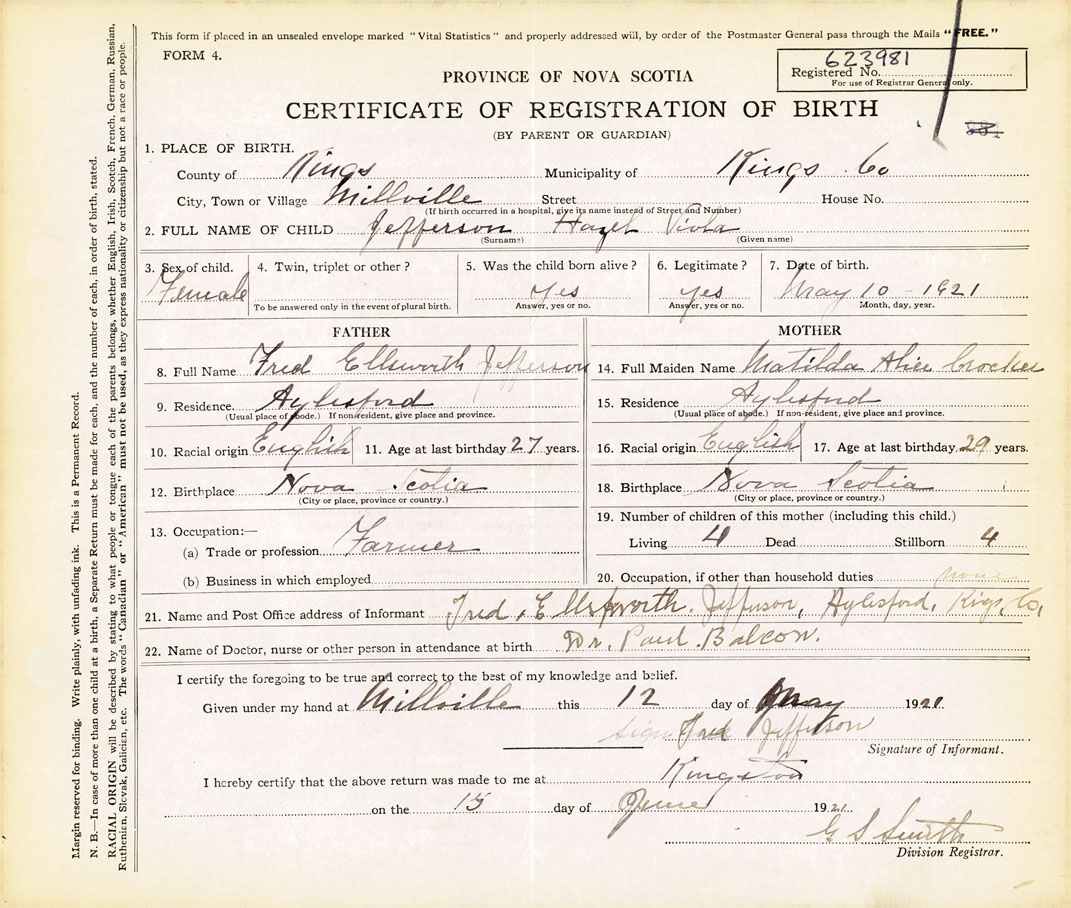 This form if placed in an unsealed envelope marked "Vital Statistics" and properly addressed will, by order of the Postmaster General pass through the Mails "FREE."
FORM 4.
623981
Registered No.
For use of Registrar General only.
PROVINCE OF NOVA SCOTIA
CERTIFICATE OF REGISTRATION OF BIRTH
(BY PARENT OR GUARDIAN)
1. PLACE OF BIRTH.
County of Kings Municipality of Kings Co
City, Town or Village Millville Street House No.
(If birth occurred in a hospital, give its name instead of Street and Number)
2. FULL NAME OF CHILD Jefferson Hazel Viola
(Surname) (Given name)
3. Sex of child. 4. Twin, triplet or other? 5. Was the child born alive? 6. Legitimate? 7. Date of birth.
Female yes yes May 10 - 1921
To be answered only in the event of plural birth. Answer, yes or no. Answer, yes or no. Month, day, year.
FATHER
8. Full Name Fred Ellsworth Jefferson
9. Residence. Aylesford
(Usual place of abode.) If non-resident, give place and province.
10. Racial origin English 11. Age at last birthday 27 years.
12. Birthplace Nova Scotia
(City or place, province or country.)
13. Occupation:—
(a) Trade or profession Farmer
(b) Business in which employed
MOTHER
14. Full Maiden Name Matilda Alice Crocker
15. Residence Aylesford
(Usual place of abode.) If non-resident, give place and province.
16. Racial origin English 17. Age at last birthday 29 years.
18. Birthplace Nova Scotia
(City or place, province or country.)
19. Number of children of this mother (including this child.)
Living 4 Dead Stillborn 4
20. Occupation, if other than household duties none
21. Name and Post Office address of Informant Fred. Ellsworth. Jefferson, Aylesford, Kigs, Co,
22. Name of Doctor, nurse or other person in attendance at birth Dr. Paul Balcon.
I certify the foregoing to be true and correct to the best of my knowledge and belief.
Given under my hand at Millville this 12 day of May 1921
Fred Jefferson
Signature of Informant.
I hereby certify that the above return was made to me at Kingston
on the 15 day of June 1921
G S Smith
Division Registrar.
Margin reserved for binding. Write plainly, with unfading ink. This is a Permanent Record.
N. B.—In case of more than one child at a birth, a Separate Return must be made for each, and the number of each, in order of birth, stated.
RACIAL ORIGIN will be described by stating to what people or tongue each of the parents belongs, whether English, Irish, Scotch, French, German, Russian,
Ruthenian, Slovak, Galician, etc. The words "Canadian" or "American" must not be used, as they express nationality or citizenship but not a race or people.